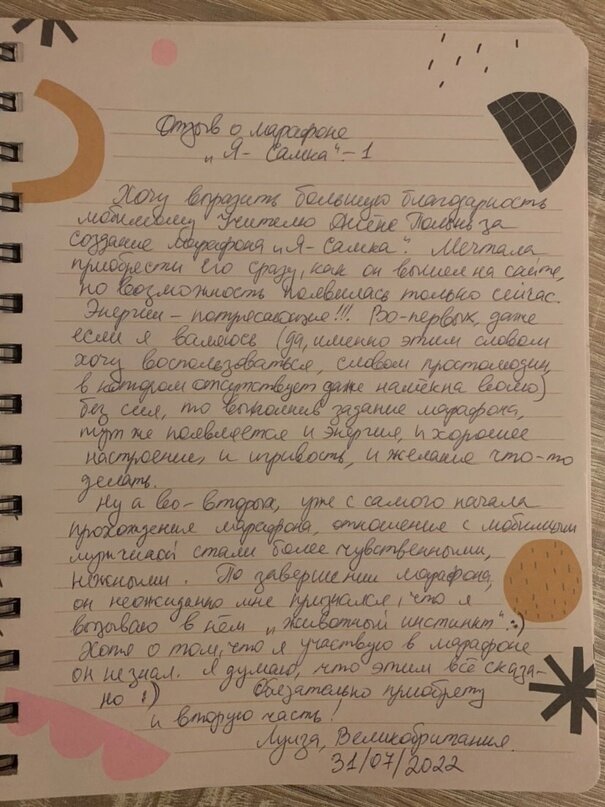 Отзыв о марафоне
„Я - Самка" - 1
Хочу выразить большую благодарность
любимому Учителю Олсене Полынь за
создание Марафона „Я - Самка". Мечтала
приобрести его сразу, как он вышел на сайте,
но возможность появилась только сейчас.
Энергии - потрясающие!!! Во-первых, даже
если я валяюсь (да, именно этим словом
хочу воспользоваться, словом простолюдин,
в котором отсутствует даже намёк на волю)
без сил, то выполнив задание марафона,
тут же появляется и энергия, и хорошее
настроение, и игривость, и желание что-то
делать.
Ну а во-вторых, уже с самого начала
прохождения марафона, отношения с любимым
мужчиной стали более чувственными,
нежными. По завершении марафона,
он неожиданно мне признался, что я
вызываю в нём „животный инстинкт" :)
Хотя о том, что я участвую в марафоне
он не знал. Я думаю, что этим всё сказа-
но :) Обязательно приобрету
и вторую часть!
Луиза, Великобритания.
31/07/2022